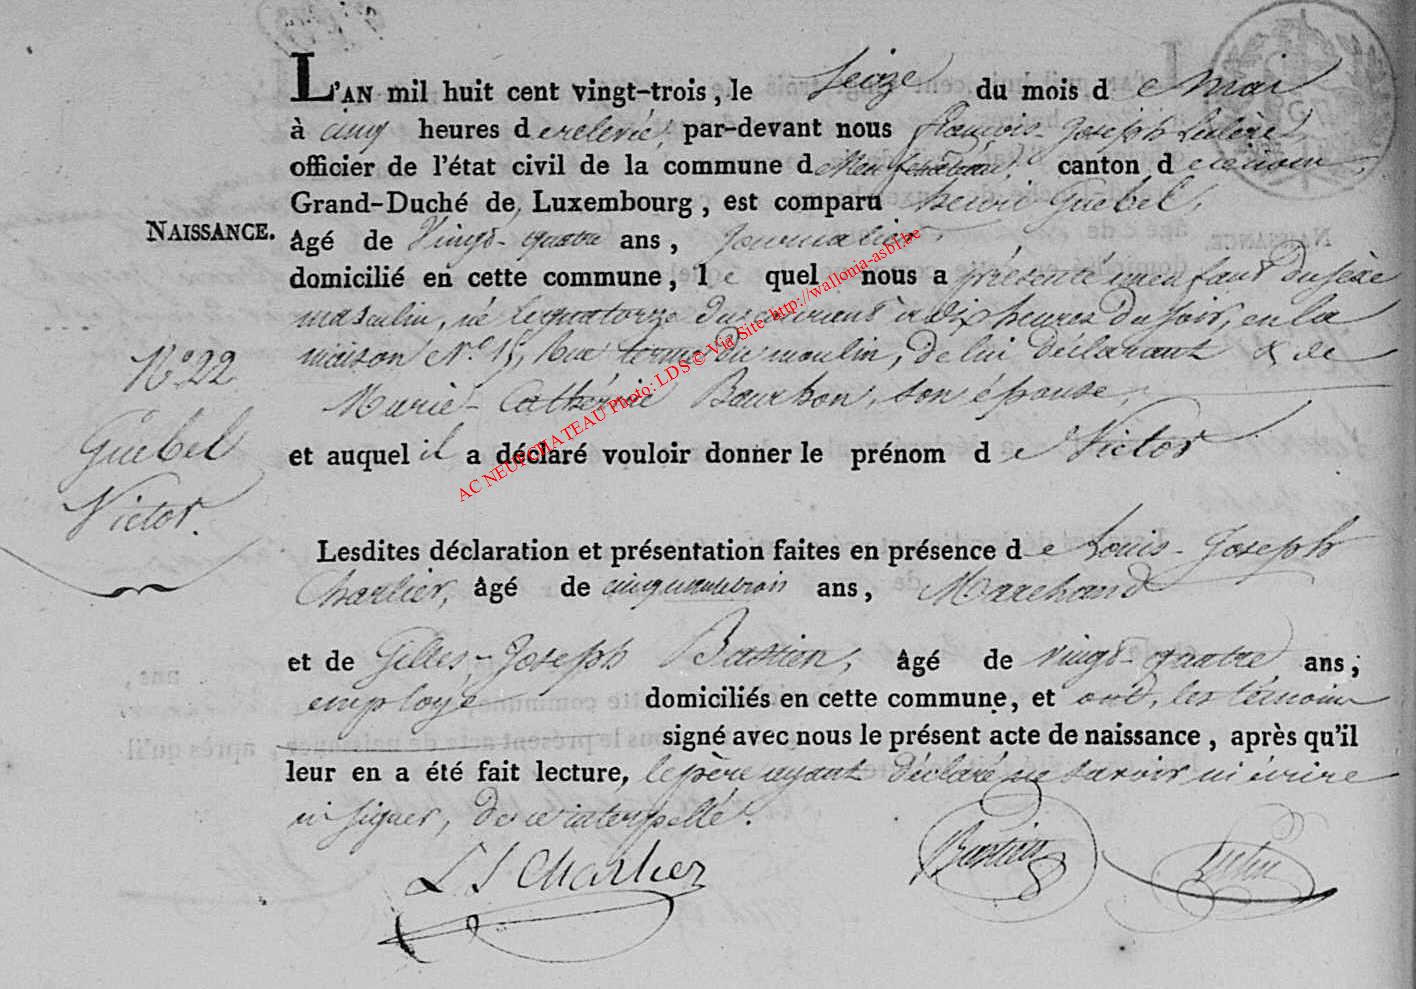 L'AN mil huit cent vingt-trois, le Seize du mois de mai
à cinq heures de relevée, par-devant nous François-Joseph
officier de l'état civil de la commune de Neufchâteau, canton de ce nom
Grand-Duché de Luxembourg, est comparu henri Guebel,
NAISSANCE.
âgé de Vingt-quatre ans, Journalier
domicilié en cette commune, lequel nous a présenté un enfant du sexe
masculin, né le quatorze du courant à dix heures du soir, en la
maison N.° 15, Rue du moulin, de lui déclarant & de
Marie-Cathérine Bourbon, son épouse,
N.° 22
Guébel
Victor.
et auquel il a déclaré vouloir donner le prénom de Victor
Lesdites déclaration et présentation faites en présence de Louis-Joseph
Charlier, âgé de cinquante trois ans, Marchand
et de Gilles-Joseph Bastien, âgé de vingt-quatre ans,
employé domiciliés en cette commune, et ont, les témoins
signé avec nous le présent acte de naissance, après qu'il
leur en a été fait lecture, le père ayant déclaré ne savoir ni écrire
ni signer, de ce interpellé.
L J Charlier
Bastien
AC NEUFCHATEAU Photo: LDS © Via Site http://wallonia-asbl.be